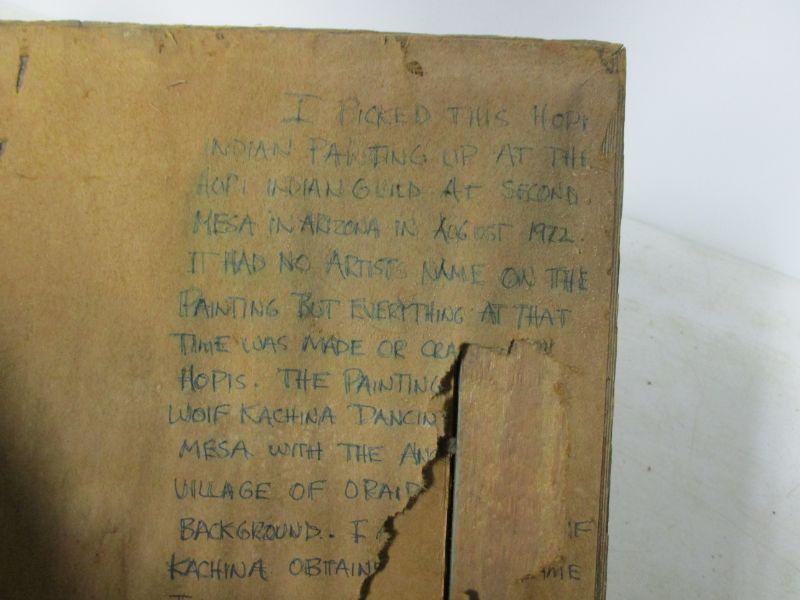 I PICKED THIS HOPI
INDIAN PAINTING UP AT THE
HOPI INDIAN GUILD AT SECOND
MESA IN ARIZONA IN AUGUST 1972.
IT HAD NO ARTISTS NAME ON THE
PAINTING BUT EVERYTHING AT THAT
TIME WAS MADE OR CRA
HOPIS. THE PAINTING
WOLF KACHINA DANCIN
MESA WITH THE AN
VILLAGE OF ORAID
BACKGROUND. I
KACHINA OBTAINE